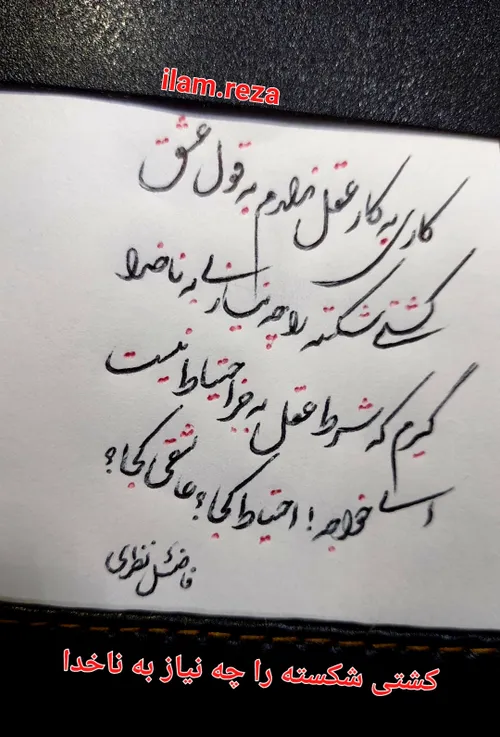 ilam.reza
کاری به کار عقل ندارم به قول عشق
کشتی شکسته را چه نیازی به ناخدا
گیرم که شرط عقل به جز احتیاط نیست
ای خواجه! احتیاط کجا؟ عاشقی کجا؟
فاضل نظری
کشتی شکسته را چه نیاز به ناخدا